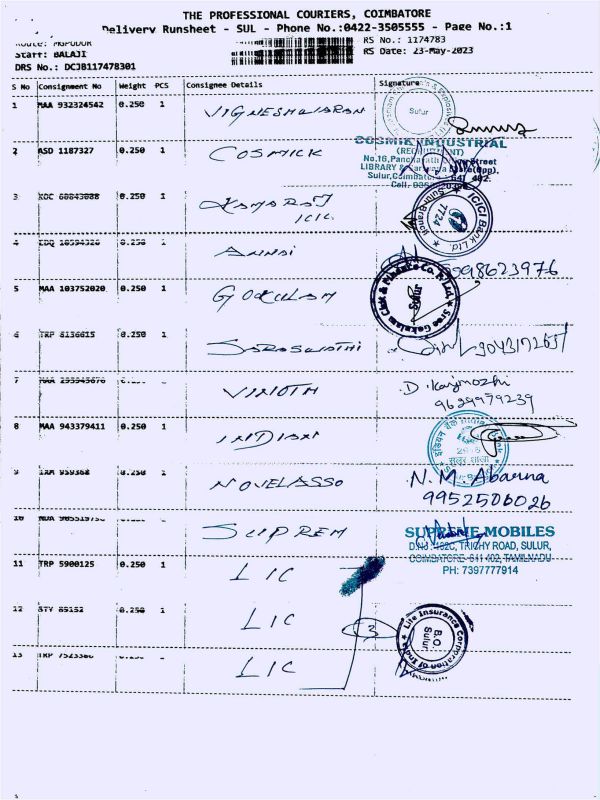 THE PROFESSIONAL COURIERS, COIMBATORE
Delivery Runsheet - SUL - Phone No.:0422-3505555 - Page No.:1
RS No.: 1174783
Staff: BALAJI
RS Date: 23-May-2023
DRS No.: DCJB117478301
S No Consignment No Weight PCS Consignee Details Signature
1 MAA 932324542 0.250 1 VIGNESHWARAN
Sulur
2 ASD 1187327 0.250 1 COSMICK
COSMIK INDUSTRIAL
No.16,
LIBRARY &
Sulur,Coimbatore 641 402.
Cell.
3 KOC 60843088 0.250 1 KAMARAJ
ICIC
ICICI Bank Ltd.
Sulur-Branch
7724
4 0.250 1 ANNAI
5 MAA 103752020 0.250 1 GOKULAM
Sree Gokulam Chit & Finance Co. P. Ltd.
Sulur
6 TRP 8136615 0.250 1 SARASWATHI
7 VINOTH
D. Kayinozhi
9629979239
8 MAA 943379411 0.250 1 INDIAN
9 0.250 1 NOVELASSO
N. M. Abarna
9952506026
10 SUPREM
SUPREME MOBILES
TRICHY ROAD, SULUR,
COIMBATORE- 641 402, TAMILNADU
PH: 7397777914
11 TRP 5900125 0.250 1 LIC
12 STY 85152 0.250 1 LIC
3
Life Insurance Corporation of India
B.O.
Sulur
13 LIC